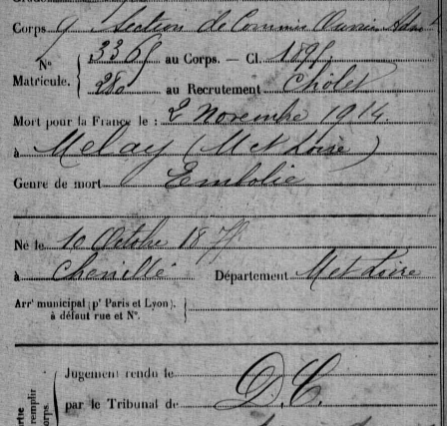 Corps 9 Section de Commis Ouvriers Adm
N° 3365 au Corps. — Cl. 1895
Matricule. 280 au Recrutement Cholet
Mort pour la France le : 2 Novembre 1914
à Melay (M et Loire)
Genre de mort Embolie
Né le 10 Octobre 18
à Chenillé Département M et Loire
Arrt municipal (pr Paris et Lyon),
à défaut rue et N°.
Jugement rendu le
par le Tribunal de D.C.